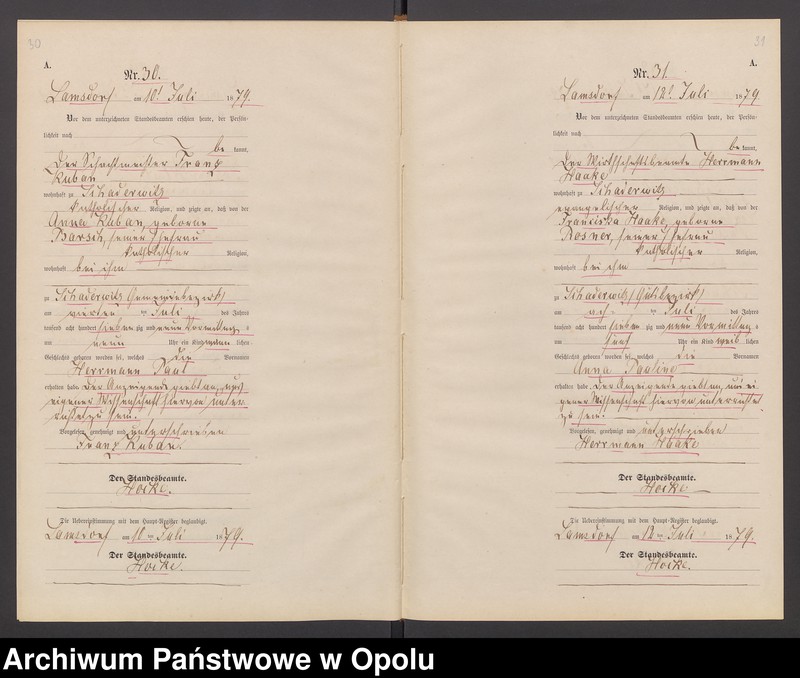 30
A.
Nr. 30.
Lamsdorf am 10t Juli 1879.
Vor dem unterzeichneten Standesbeamten erschien heute, der Persön-
lichkeit nach
be kannt,
der Schachtmeister Franz
Kuban
wohnhaft zu Schaderwitz
katholischer Religion, und zeigte an, daß von der
Anna Kuban, geborne
Barsch, seiner Ehefrau
katholischer Religion,
wohnhaft bei ihm
zu Schaderwitz Gemeindebezirk
am vierten ten Juli des Jahres
tausend acht hundert sieben zig und neun Vormittag s
um neun Uhr ein Kind männ lichen
Geschlechts geboren worden sei, welches die Vornamen
Herrmann Paul
erhalten habe. Der Anzeigende giebt an, aus
eigener Wissenschaft hiervon unter
richtet zu sein.
Vorgelesen, genehmigt und unterschrieben
Franz Kuban.
Der Standesbeamte.
Hocke.
Die Uebereinstimmung mit dem Haupt-Register beglaubigt.
Lamsdorf am 10 ten Juli 1879.
Der Standesbeamte.
Hocke.
31
A.
Nr. 31.
Lamsdorf am 12t Juli 1879
Vor dem unterzeichneten Standesbeamten erschien heute, der Persön-
lichkeit nach
be kannt,
der Wirthschaftsbeamte Herrmann
Haake
wohnhaft zu Schaderwitz
evangelischer Religion, und zeigte an, daß von der
Franciska Haake, geborne
Rosner, seiner Ehefrau
katholischer Religion,
wohnhaft bei ihm
zu Schaderwitz (Gutsbezirk)
am Juli des Jahres
tausend acht hundert sieben zig und neun Vormittag s
um fünf Uhr ein Kind weib lichen
Geschlechts geboren worden sei, welches die Vornamen
Anna Pauline
erhalten habe. Der Anzeigende giebt an, aus ei
gener Wissenschaft hiervon unterrichtet
zu sein.
Vorgelesen, genehmigt und unterschrieben
Herrmann Haake
Der Standesbeamte.
Hocke
Die Uebereinstimmung mit dem Haupt-Register beglaubigt.
Lamsdorf am 12 ten Juli 1879.
Der Standesbeamte.
Hocke.
Archiwum Państwowe w Opolu